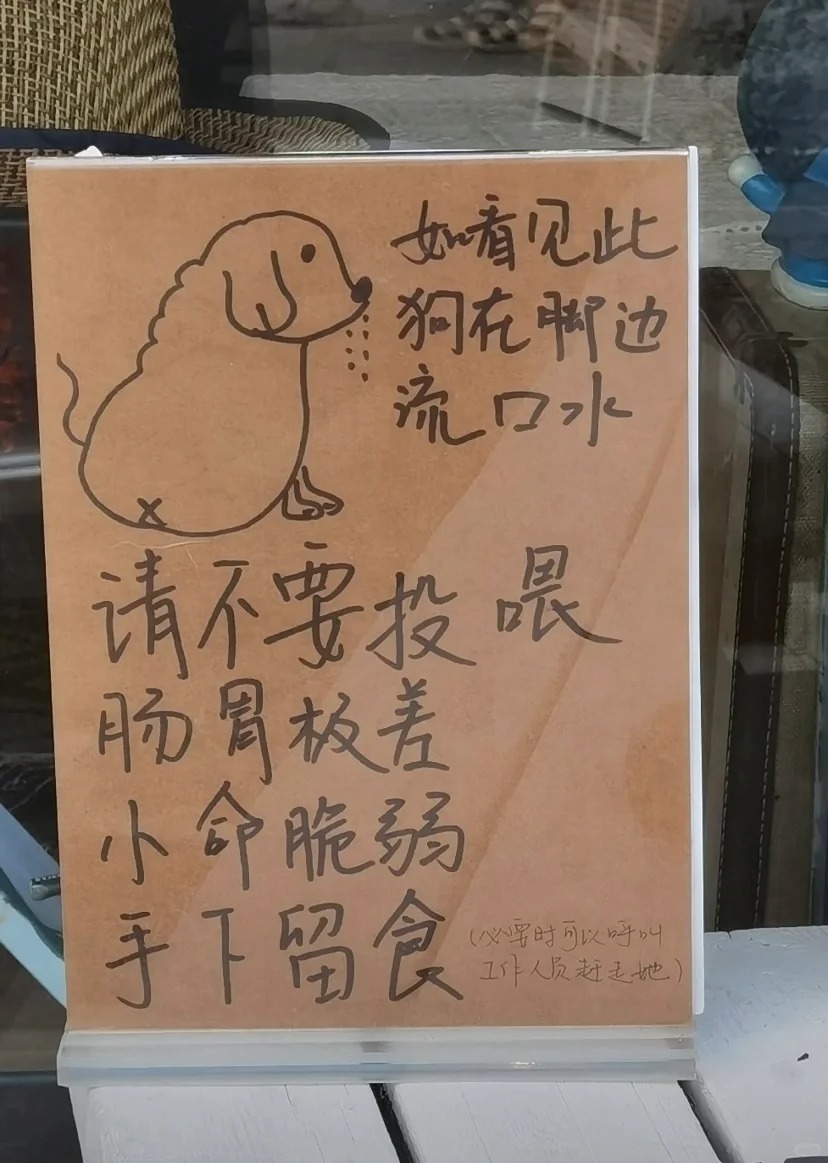 如看见此
狗在脚边
流口水
请不要投喂
肠胃板差
小命脆弱
手下留食
(必要时可以呼叫
工作人员赶走地)